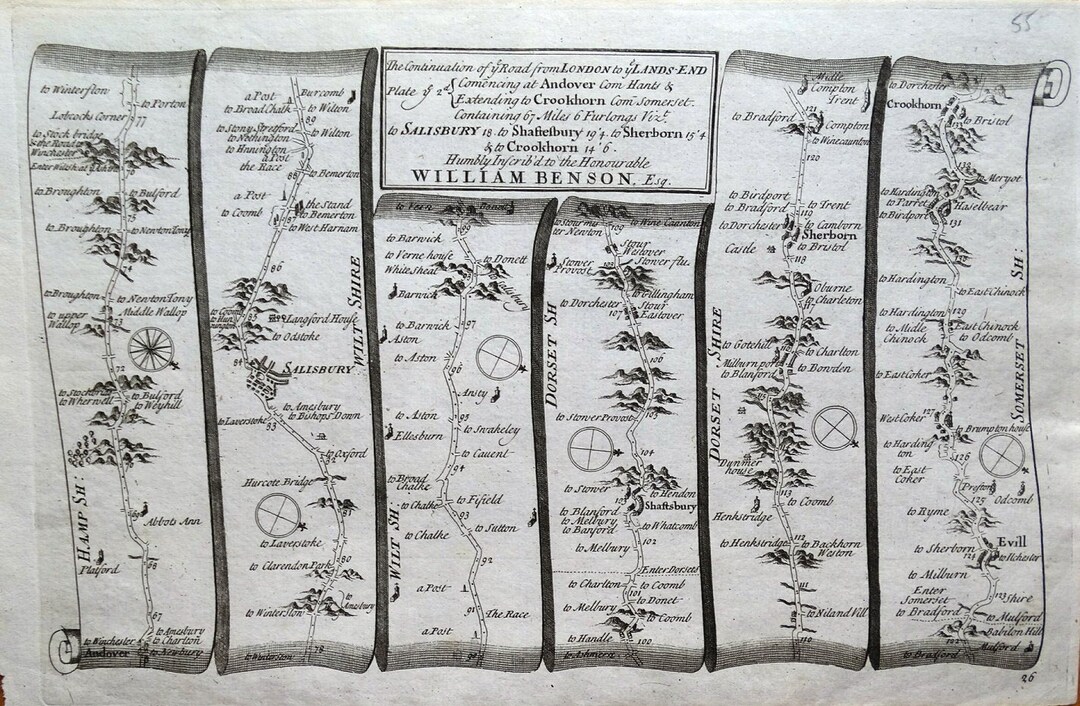 55
The Continuation of yͤ Road from LONDON to yͤ LANDS-END
Plate yͤ 2ᵈ
Comencing at Andover Com Hants &
Extending to Crookhorn Com Somerset.
Containing 67 Miles 6 Furlongs Vizᵗ.
to SALISBURY 18. to Shaftesbury 19'4. to Sherborn 15'4
& to Crookhorn 14'6.
Humbly Inscrib'd to the Honourable
WILLIAM BENSON, Esq.
to Winterslon
to Porton
Lobcocks Corner
77
to Stock bridge
& the Road to
Winchester
76
to Broughton
to Bulford
75
to Broughton
to Newton Tony
74
to Broughton
to Newton Tony
to upper
Wallop
Middle Wallop
72
to Stockbri
to Wherwell
to Bulford
to Weyhill
69
Abbots Ann
HAMP SH:
Platford
68
67
to Winchester
Andover
to Amesbury
to Charlton
to Newbury
a Post
to Broad Chalk
Burcomb
to Wilton
89
to Stony Stretford
to Nothington
to Hnnington
to Wilton
a Post
the Race
88
to Bemerton
a Post
to Coomb
the Stand
to Bemerton
87
to West Harnam
86
WILT SHIRE
Langford House
to Odstoke
84
SALISBURY
to Laverstoke
83
to Amesbury
to Bishops Down
to Oxford
82
Hurcote Bridge
to Laverstoke
80
to Clarendon Park
to Amesbury
to Winterslow
78
to Vern
Donet
99
to Barwick
to Verne house
White Sheat
to Donett
98
Barwick
to Barwick
97
Aston
to Aston
96
Ansty
to Aston
95
to Swakeley
Ellesburn
to Cauent
94
to Broad
Chalke
to Chalke
to Fifield
93
to Sutton
to Chalke
92
WILT SH:
a Post
91
The Race
a Post
90
to Stourmis
ter Newton
to Wine Caunton
109
Stour
Westover
Stower flu.
Stower
Provost
108
to Gillingham
to Dorchester
107
Stour
Eastover
DORSET SH
106
105
to Stower Provost
104
to Stower
to Hendon
103
Shaftsbury
to Blanford
to Melbury
to Banford
to Whatcomb
102
to Melbury
Enter Dorset
to Charlton
to Coomb
101
to Donet
to Melbury
to Coomb
to Handle
100
to Ashmere
Midle
Compton
Trent
121
to Bradford
Compton
to Winecaunton
120
to Birdport
to Bradford
to Trent
119
to Dorchester
to Camborn
Sherborn
to Bristol
Castle
118
Oburne
to Charleton
117
DORSET SHIRE
to Gotehill
to Charlton
Milburn port
to Blanford
to Bowden
115
Dunmer
house
113
to Coomb
Henkstridge
to Henkstridge
112
to Backhorn
Weston
111
to Niland Vill
110
to Dorchester
Crookhorn
to Bristol
133
132
to Meryot
to Hardington
to Parret
to Birdport
Haselbear
131
to Hardington
to East Chinock
to Hardington
129
to Midle
Chinock
East Chinock
to Odcomb
to East Coker
West Coker
127
to Brumpton house
to Harding
ton
126
to East
Coker
Preston
125
Odcomb
to Ryme
Evill
to Sherborn
124
to Ilchester
to Milburn
Enter
Somerset
Shire
123
to Bradford
to Mulford
Babilon Hill
122
Mulford
to Bradford
SOMERSET SH:
26